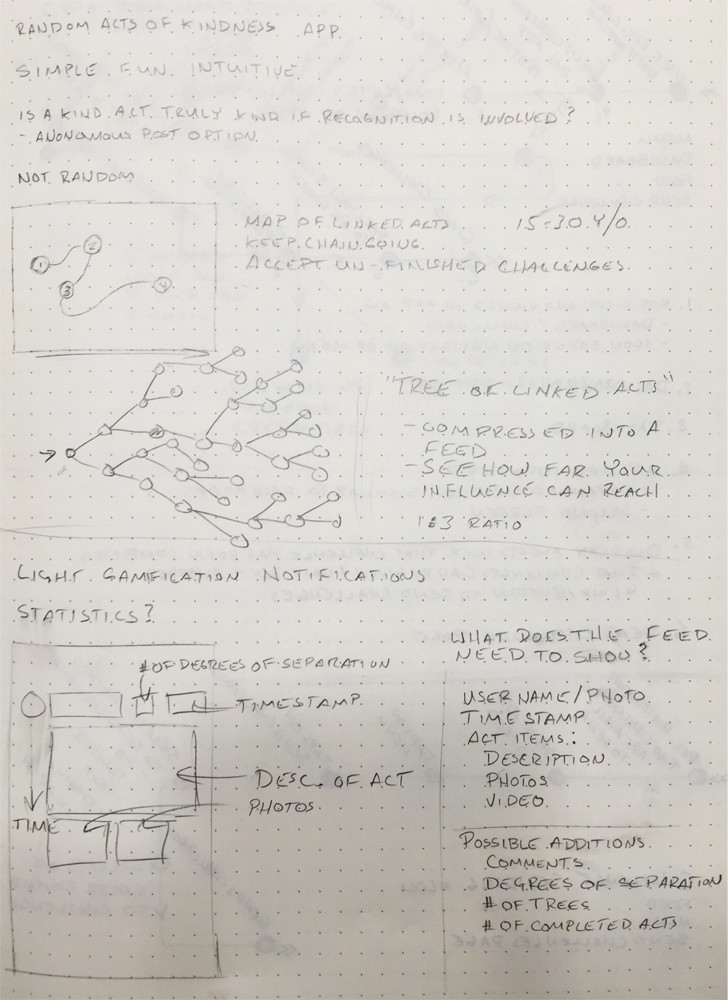 RANDOM ACTS OF KINDNESS APP
SIMPLE. FUN. INTUITIVE.
IS A KIND ACT TRULY KIND IF RECOGNITION IS INVOLVED?
- ANONOMOUS POST OPTION.
NOT RANDOM
1 2 3 4
MAP OF LINKED ACTS. 15-30 Y/O.
KEEP CHAIN GOING.
ACCEPT UN-FINISHED CHALLENGES.
"TREE OF LINKED ACTS"
- COMPRESSED INTO A
FEED
- SEE HOW FAR YOUR
INFLUENCE CAN REACH
1:3 RATIO
LIGHT GAMIFICATION NOTIFICATIONS
STATISTICS?
# OF DEGREES OF SEPARATION
TIMESTAMP.
DESC. OF ACT
PHOTOS.
TIME
WHAT DOES THE FEED
NEED TO SHOW?
USER NAME/PHOTO
TIME STAMP.
ACT ITEMS:
DESCRIPTION.
PHOTOS
VIDEO.
POSSIBLE ADDITIONS.
COMMENTS.
DEGREES OF SEPARATION
# OF TREES
# OF COMPLETED ACTS